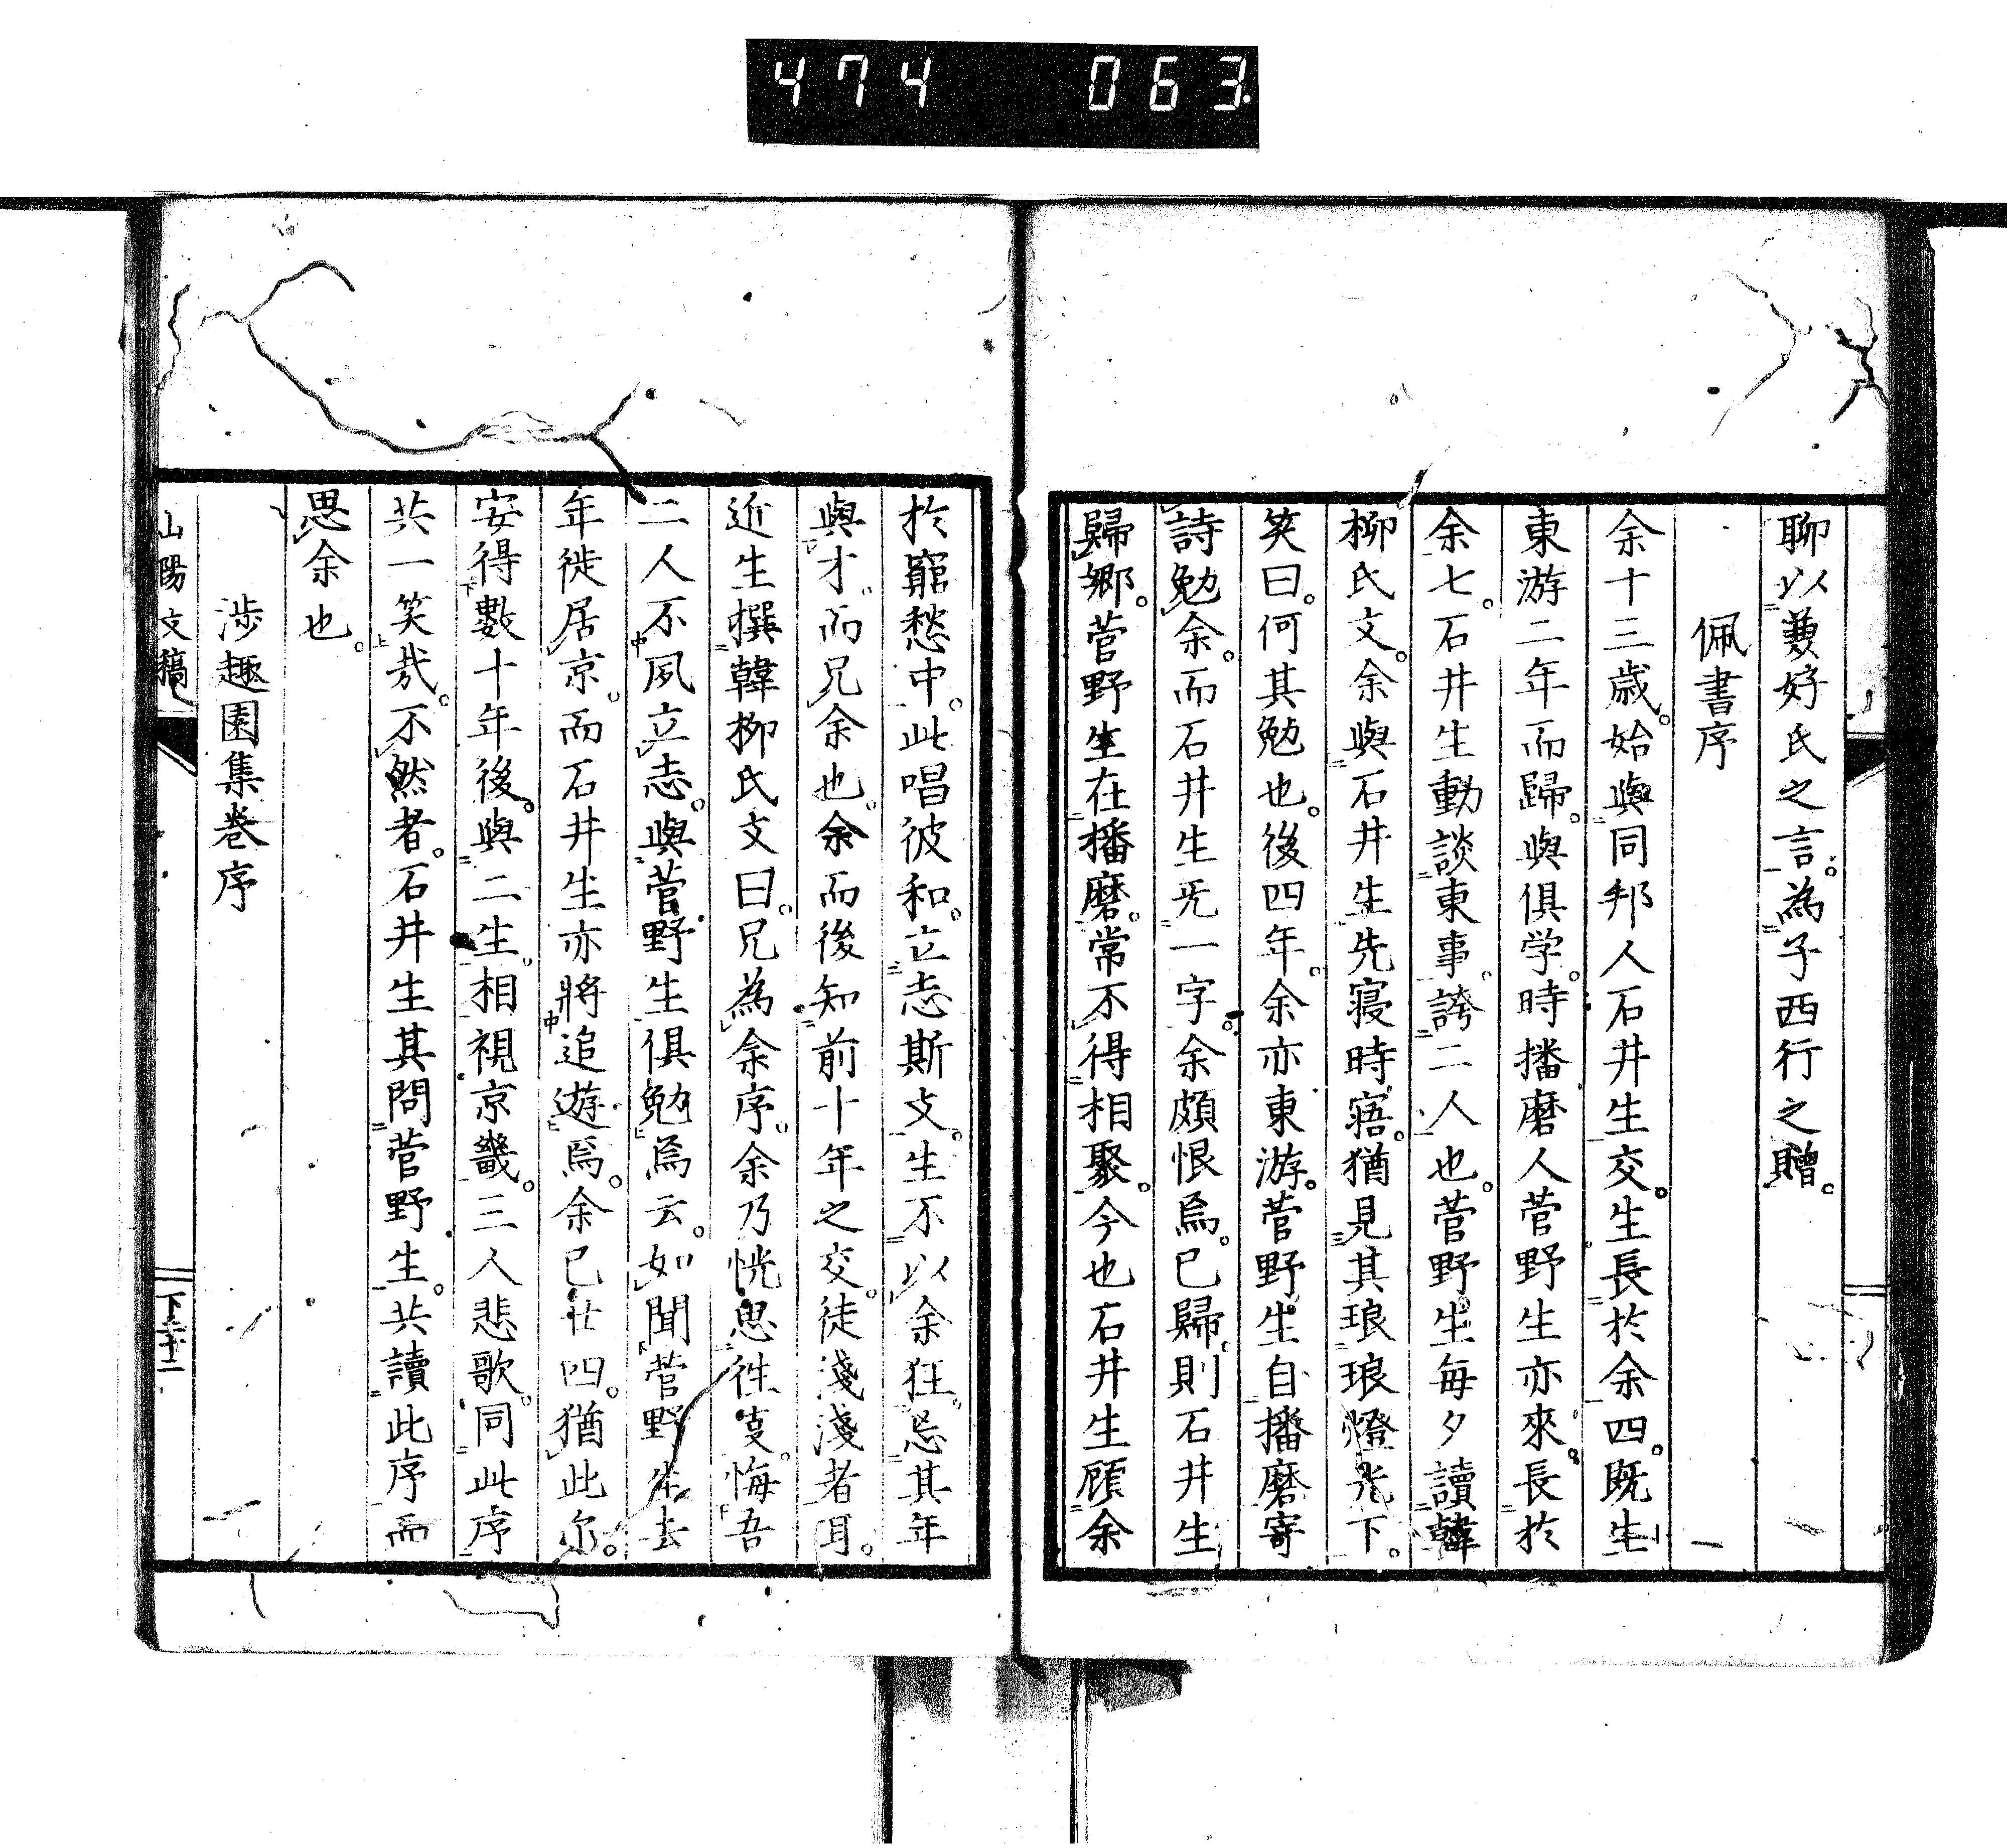 474 063
聊以兼好氏之言。為子西行之贈。
佩書序
余十三歳。始與同邦人石井生交。生長於余四。既生
東游二年而歸。與俱学。時播磨人菅野生亦來。長於
余七。石井生動談東事。誇二人也。菅野生每夕讀韓
柳氏文。余與石井生先寝時寤。猶見其琅琅燈光下。
笑曰。何其勉也。後四年。余亦東游。菅野生自播磨寄
詩勉余。而石井生旡一字。余頗恨焉。已歸。則石井生
歸郷。菅野生在播磨。常不得相聚。今也石井生顧余
於窮愁中。此唱彼和。立志斯文。生不以余狂。忌其年
與才。而兄余也。余而後知前十年之交。徒淺淺者耳。
近生撰韓柳氏文曰。兄為余序。余乃恍思徃事。悔吾
二人不夙立志。與菅野生俱勉焉云。如聞菅野生去
年徙居京。而石井生亦將追遊焉。余已廿四。猶此尓。
安得數十年後。與二生。相視京畿。三人悲歌。同此序
共一笑哉。不然者。石井生其問菅野生。共讀此序而
思余也。
渉趣園集巻序
山陽文稿
下 二十二